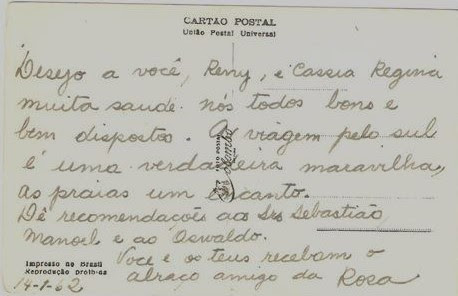 CARTÃO POSTAL
União Postal Universal
Desejo a você, Reny, e Cassia Regina
muita saude. nós todos bons e
bem dispostos. A viagem pelo sul
é uma verdadeira maravilha,
as praias um encanto.
Dê recomendações aos Srs Sebastião,
Manoel e ao Oswaldo.
Voce e os teus recebam o
abraço amigo da Rosa
Impresso no Brasil
Reprodução proibida
14-1-62